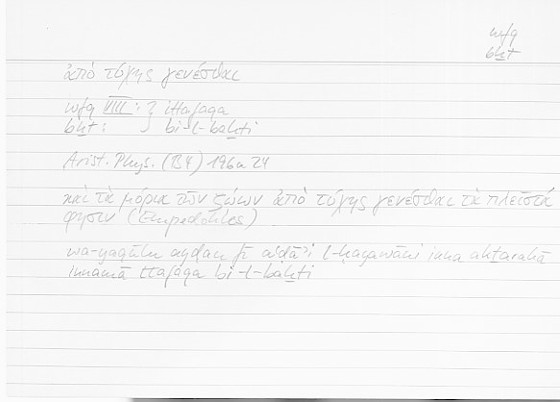 wfq
bḫt
ἀπὸ τύχης γενέσθαι
wfq VIII : } ittafaqa
bḫt : } bi-l-baḫti
Arist. Phys. (B4) 196a 24
καὶ τὰ μόρια τῶν ζώων ἀπὸ τύχης γενέσθαι τὰ πλεῖστά
φησιν (Empedokles)
wa-yaqūlu ayḍan fī aʿḍāʾi l-ḥayawāni inna akṯarahā
innamā ttafaqa bi-l-baḫti